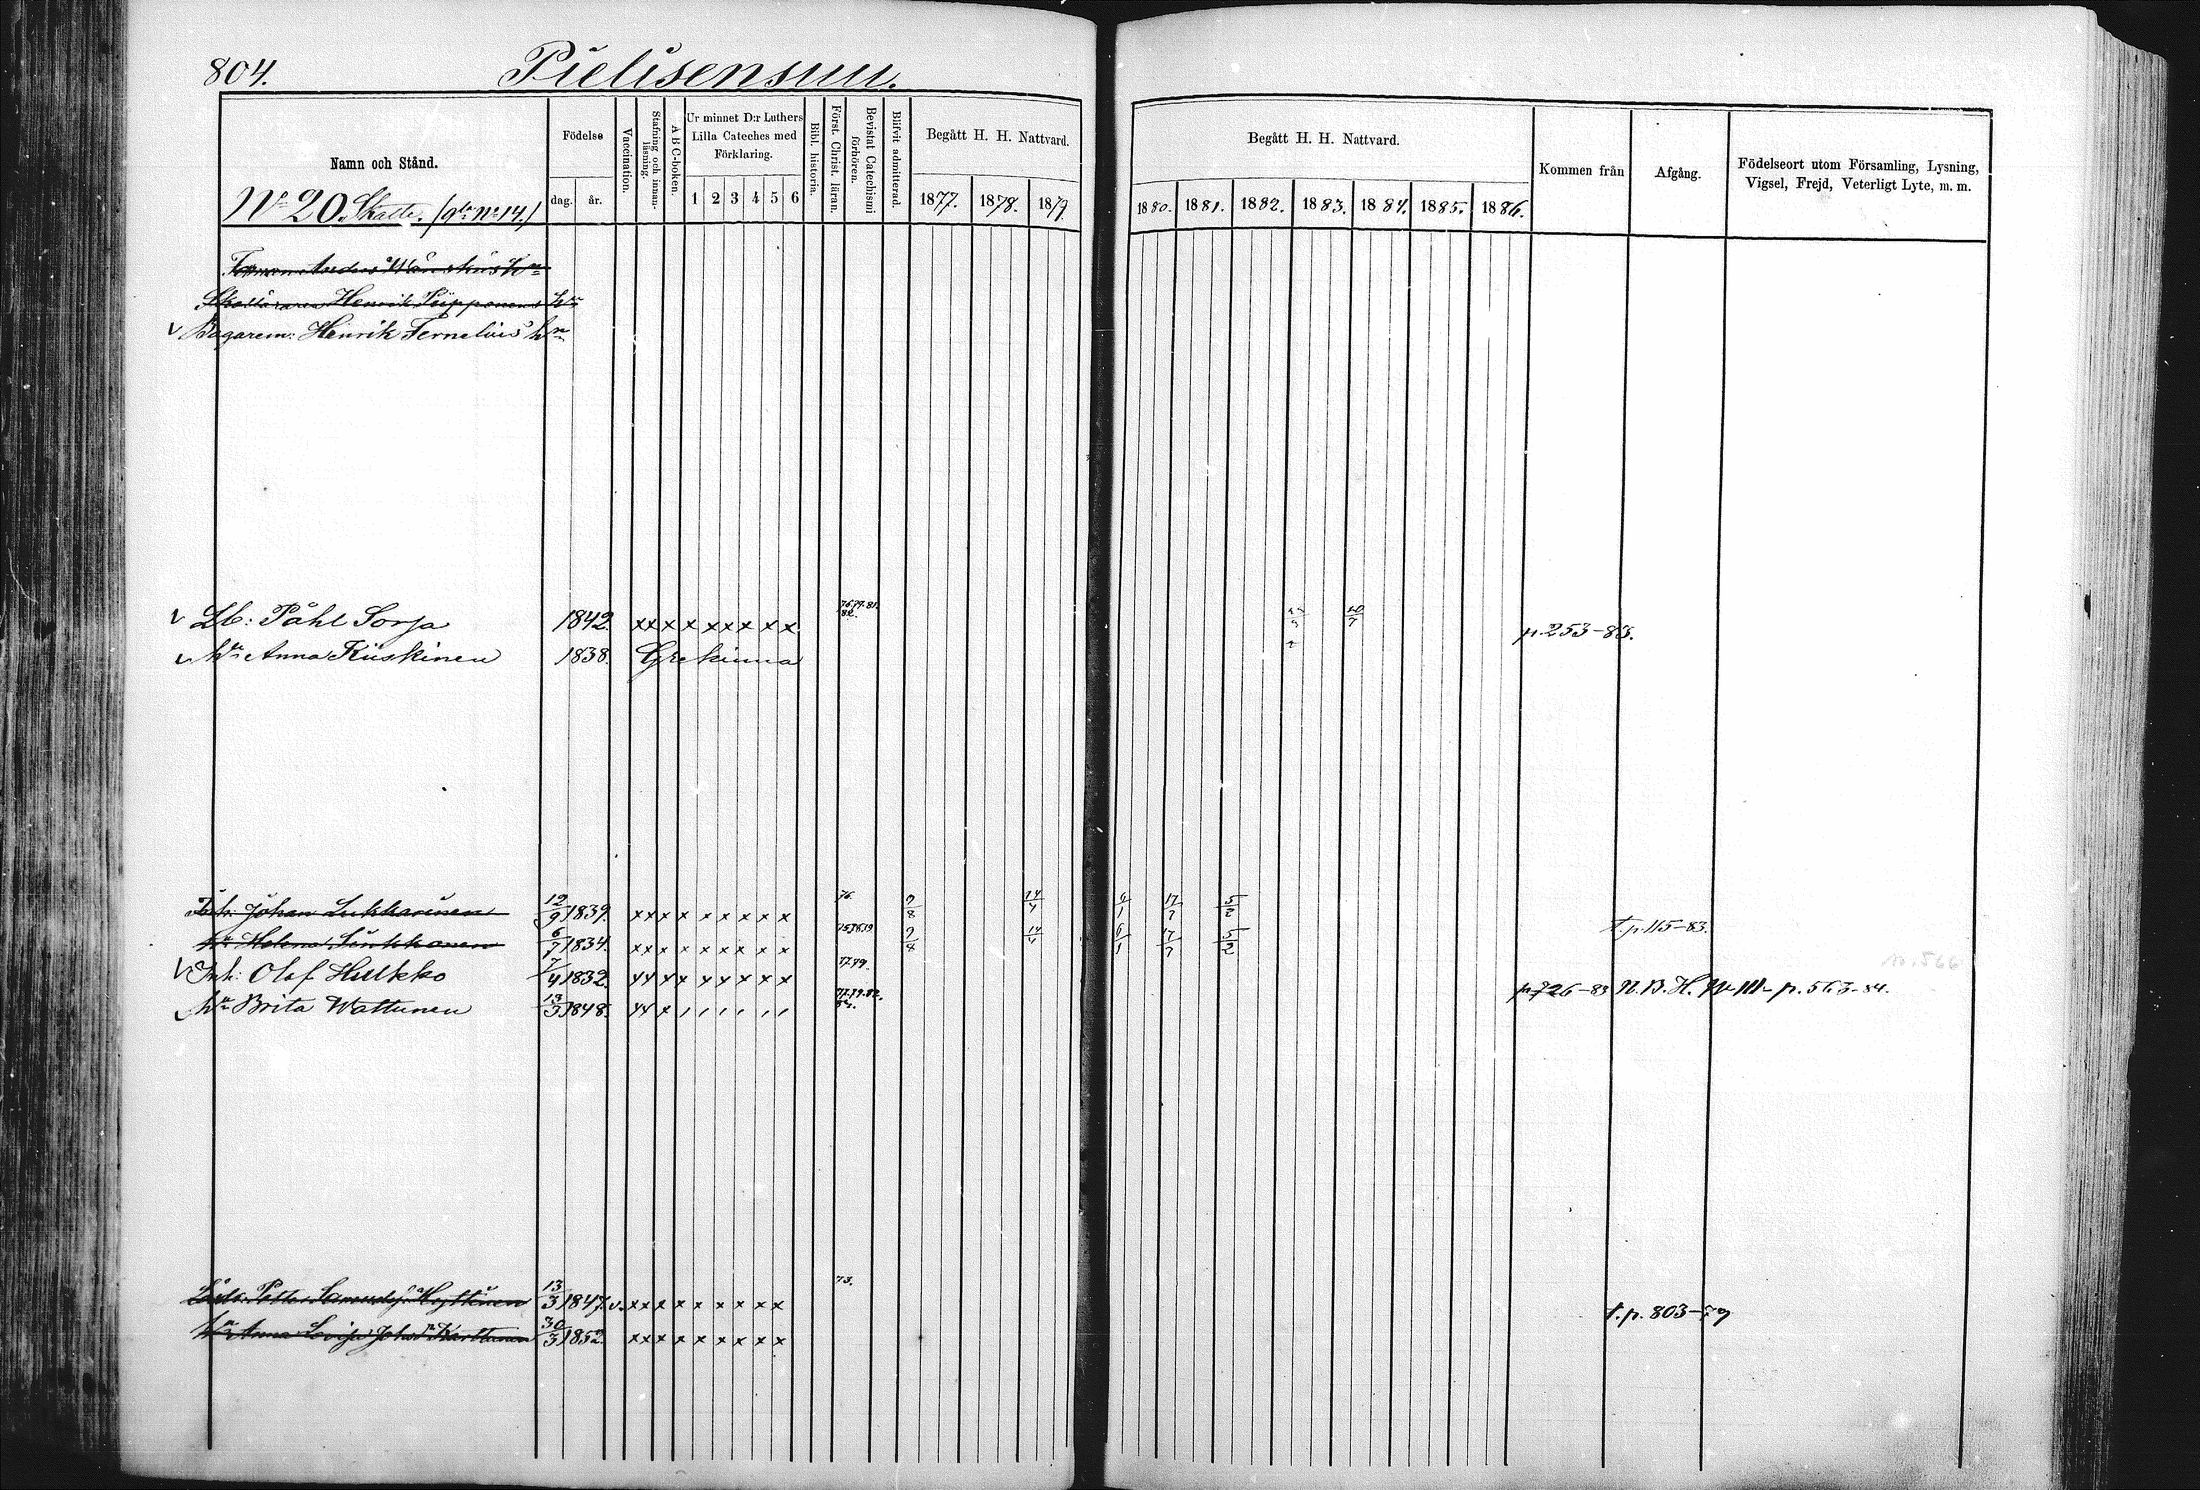 804. Pielisensuu.
Namn och Stånd. Födelse dag. år. Vaccination. Stafning och innanläsning. ABC-boken. Ur minnet D:r Luthers Lilla Cateches med Förklaring. 1 2 3 4 5 6 Bibl. historia. Först. Christ. läran. Bevistat Catechismi förhören. Blifvit admitterad. Begått H. H. Nattvard. 1877. 1878. 1879
Begått H. H. Nattvard. 1880. 1881. 1882. 1883. 1884. 1885. 1886. Kommen från Afgång. Födelseort utom Församling, Lysning, Vigsel, Frejd, Veterligt Lyte, m. m.
No 20. Skatte. (gl. No 14.)
Henrik Piipponens
Bagarem: Henrik Fernelius' hn
v Lb: Påhl Sorsa 1842. x x x x x x x x x 76.79.81. 82. 20/7 p. 253-83.
v hu Anna Kiiskinen 1838. Grekinna
Inh: Johan Lukkarinen 12/9 1839. x x x x x x x x x 76. 9/8 14/4 6/1 17/7 5/2
hu Helena Sinkkonen 6/7 1834. x x x x x x x x x 9/8 14/4 6/1 17/7 5/2 t. p. 115-83.
v Inh: Olof Hulkko 7/4 1832. x x x x x x x x x 77.79.
p. 726-83 N.B.H. p. 563-84.
v hu Brita Wattunen 13/3 1848. x x x / / / / / / 77.79.82. 84.
Petter Samuelsj. Hyttinen 13/3 1847. v. x x x x x x x x x 73.
t. p. 803-79
hu Anna Lovisa Johsdr Karttunen 30/3 1852. x x x x x x x x x